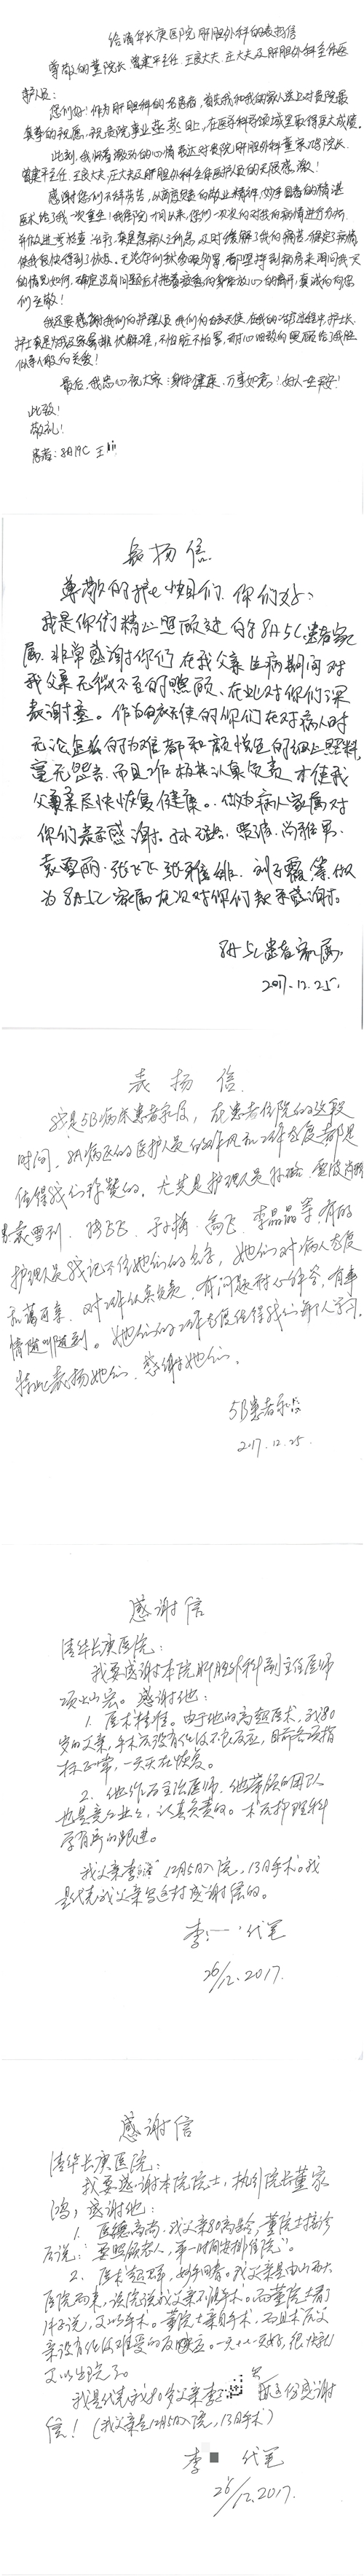 给清华长庚医院肝胆外科的表扬信
尊敬的董院长、曾建平主任、王良大夫、庄大夫及肝胆外科全体医
护人员：
您们好！作为肝胆科的一名患者，首先我和我的家人送上对贵院最
真挚的祝愿，祝贵院事业蒸蒸日上，在医学科学领域里取得更大成绩。
此刻，我怀着激动的心情表达对贵院肝胆外科董家鸿院长、
曾建平主任、王良大夫、庄大夫及肝胆外科全体医护人员的无限感激！
感谢您们不辞劳苦，以高度的敬业精神，妙手回春的精湛
医术给了我一次重生！我住院
并做进一步检查、治疗，急患病人之所急，及时缓解了我的痛苦，
使我很快得到了恢复。
们至敬！
我还要感谢我们的护理员，我们的白衣天使，在我的治疗过程中，护士长、
护士真是为我及家属排忧解难，不怕脏不怕累，耐心细致的照顾给了我胜
似亲人般的关爱！
最后，我忠心祝大家：身体健康、万事如意！好人一生平安！
此致！
敬礼！
患者：8A19C 王
表扬信
尊敬的护士姐妹们，你们好：
我是你们精心照顾过的8A5C患者家
属，非常感谢你们在我父亲生病期间对
我父亲无微不至的照顾，在此对你们深
表谢意。作为白衣天使的你们在对病人时
无论怎么的为难都和颜悦色的细心照料，
毫无怨言，而且工作极其认真负责，才使我
父亲尽快恢复健康。作为病人家属对
你们表示感谢。
为8A5C家属在次对你们表示感谢。
8A5C患者家属
2017.12.25.
表扬信
我是5B病床患者家属，在患者住院的这段
时间，8A病区的医护人员的作风和工作态度都是
值得我们称赞的，尤其是护理人员
李晶晶等，有的
护理人员我记不住她们的名字，她们对病人态度
和蔼可亲，对工作认真负责，有问题耐心解答，有事
情随叫随到。她们的工作态度值得我们每个人学习。
特此表扬她们，感谢她们。
5B患者家属
2017.12.25.
感谢信
清华长庚医院：
我要感谢本院肝胆外科副主任医师
项灿宏。感谢他：
1. 医术精湛。由于他的高超医术，我80
岁的父亲，手术后没有任何不良反应，目前各项指
标正常，一天天在恢复。
2. 他作为主治医师，他带领的团队
也是兢兢业业，认真负责的。术后护理科
学有序的跟进。
我父亲李 12月5日入院，13日手术。我
是代表我父亲写这封感谢信的。
李 代笔
26/12.2017.
感谢信
清华长庚医院：
我要感谢本院院士，执行院长董家
鸿，感谢他：
1. 医德高尚。我父亲80高龄，董院士接诊
后说：“要照顾老人，第一时间安排住院”。
2. 医术超群，妙手回春。我父亲是由山西大
医院而来，该院说我父亲不能手术。而董院士看了
片子说，可以手术。董院士亲自手术，而且术后父
亲没有任何难受的反应。一天比一天好，很快就
可以出院了。
我是代表我80岁父亲李 写这份感谢
信！（我父亲是12月5日入院，13日手术）
李 代笔
26/12.2017.